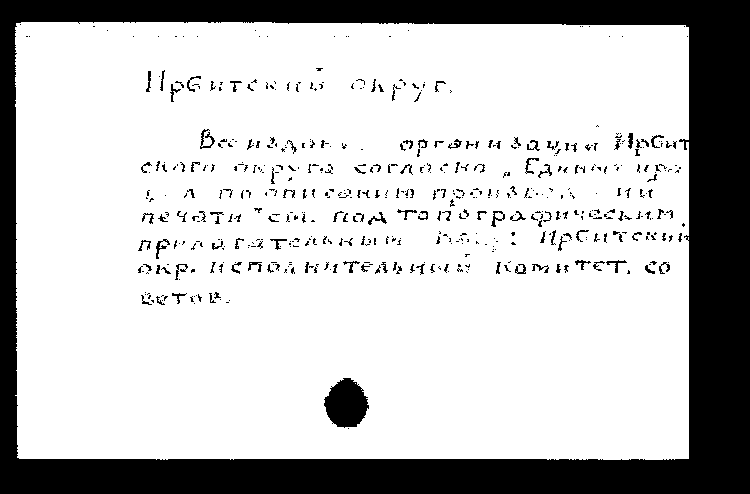 Ирбитский округ.
Все издан. организаций Ирбит
ского округа согласно „Единых пра
по описанию произвед ний
печати" см. под топографическим
прилагательным : Ирбитский
окр. исполнительный комитет, со
ветов.